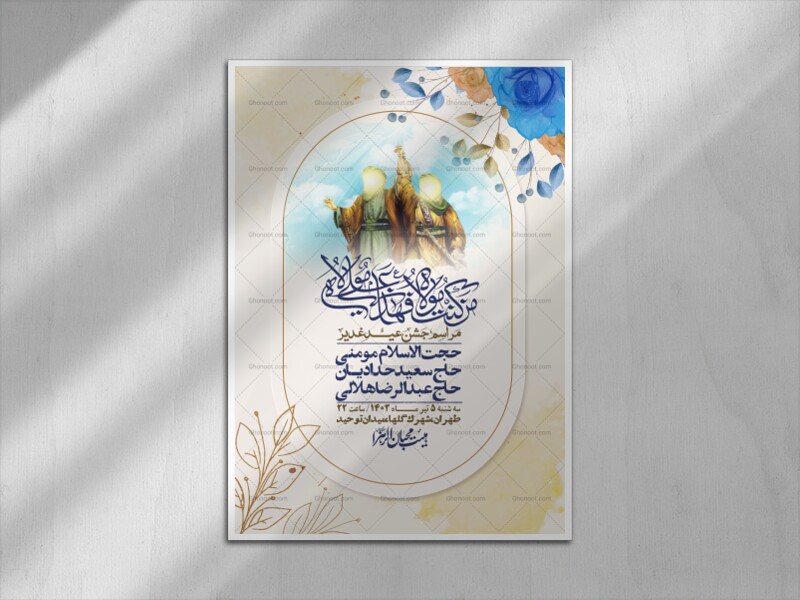 من کنت مولاه فهذا علی مولاه
مراسم جشن عید غدیر
حجت الاسلام مومنی
حاج سعید حدادیان
حاج عبدالرضا هلالی
سه شنبه ۵ تیر ماه ۱۴۰۳ / ساعت ۲۲
طهران شهرک گلها میدان توحید
هیئت محبان الزهرا
Ghonoot.com